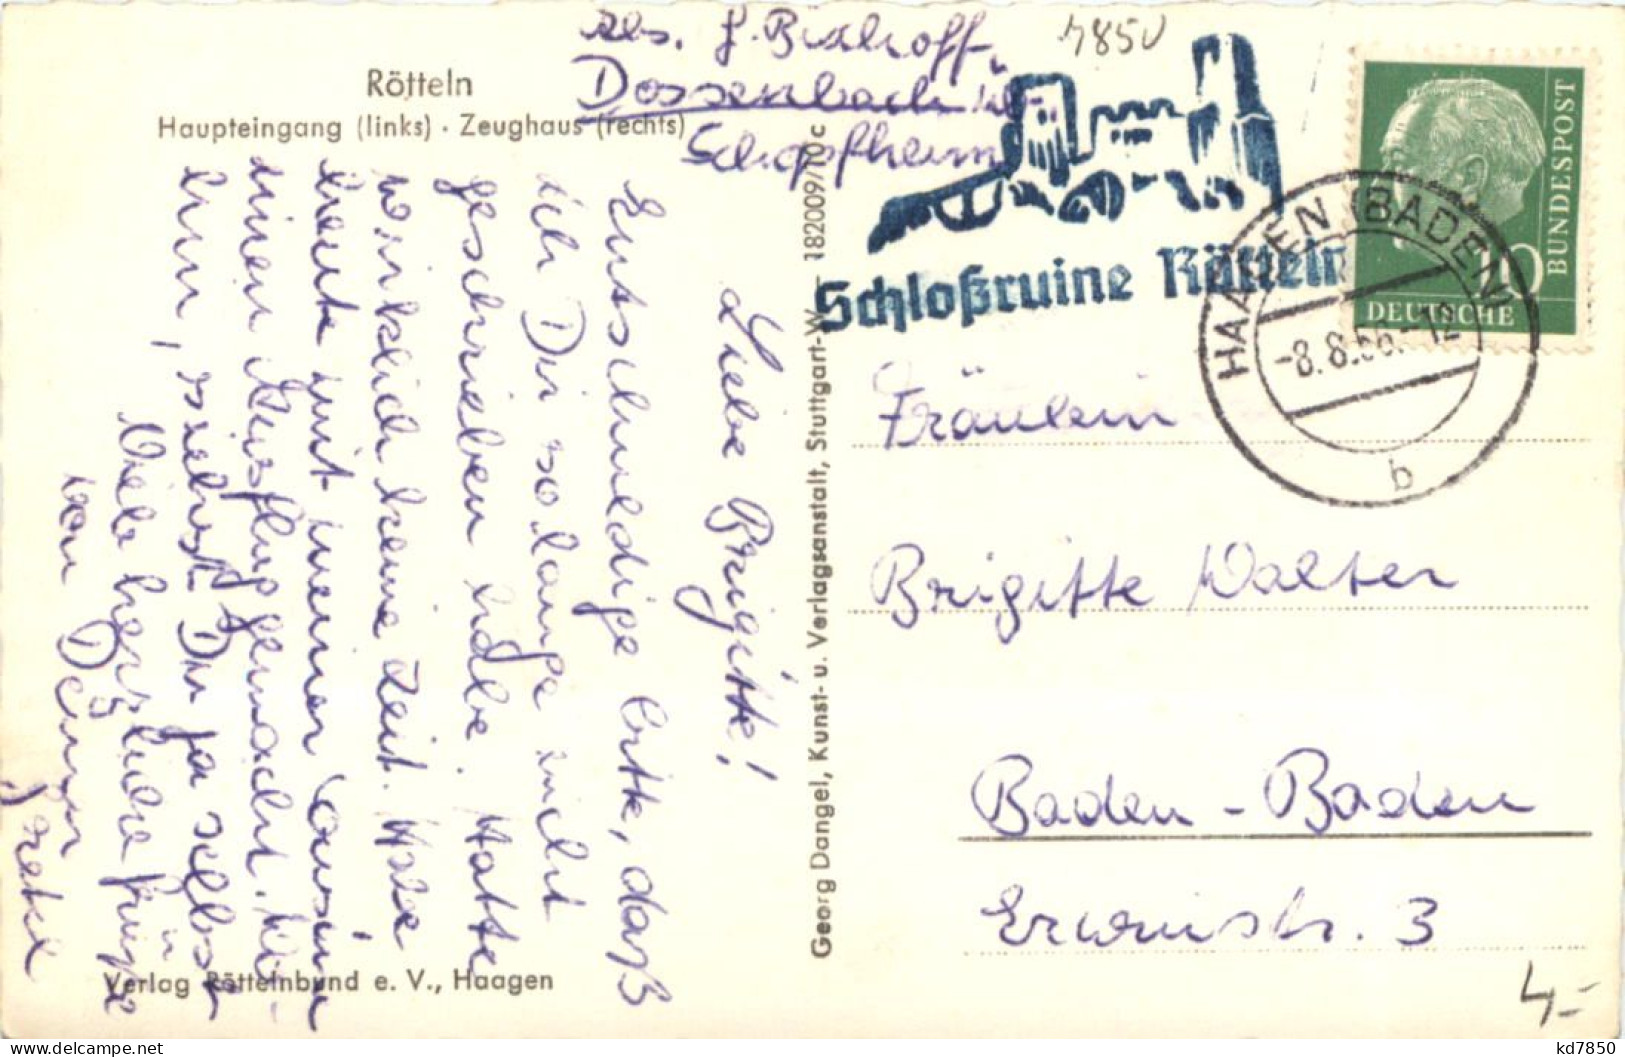 Rötteln
Haupteingang (links) · Zeughaus (rechts)
Abs. G. Bischoff,
Dossenbach
Schopfheim
7850
Schloßruine Rötteln
HAAGEN (BADEN)
-8.8.56.-12
b
BUNDESPOST
10
DEUTSCHE
Liebe Brigitte!
Entschuldige bitte, daß
ich Dir solange nicht
geschrieben habe. Hatte
wirklich keine Zeit. Habe
heute mit meiner Cousine
einen Ausflug gemacht. Wie
siehst Du ja selbst
Viele herzliche Grüße
von Deiner
Gretel
Fräulein
Brigitte Walter
Baden-Baden
Erwinstr. 3
Georg Dangel, Kunst- u. Verlagsanstalt, Stuttgart-W 182009/710c
Verlag Röttelnbund e. V., Haagen
4,-
kd7850